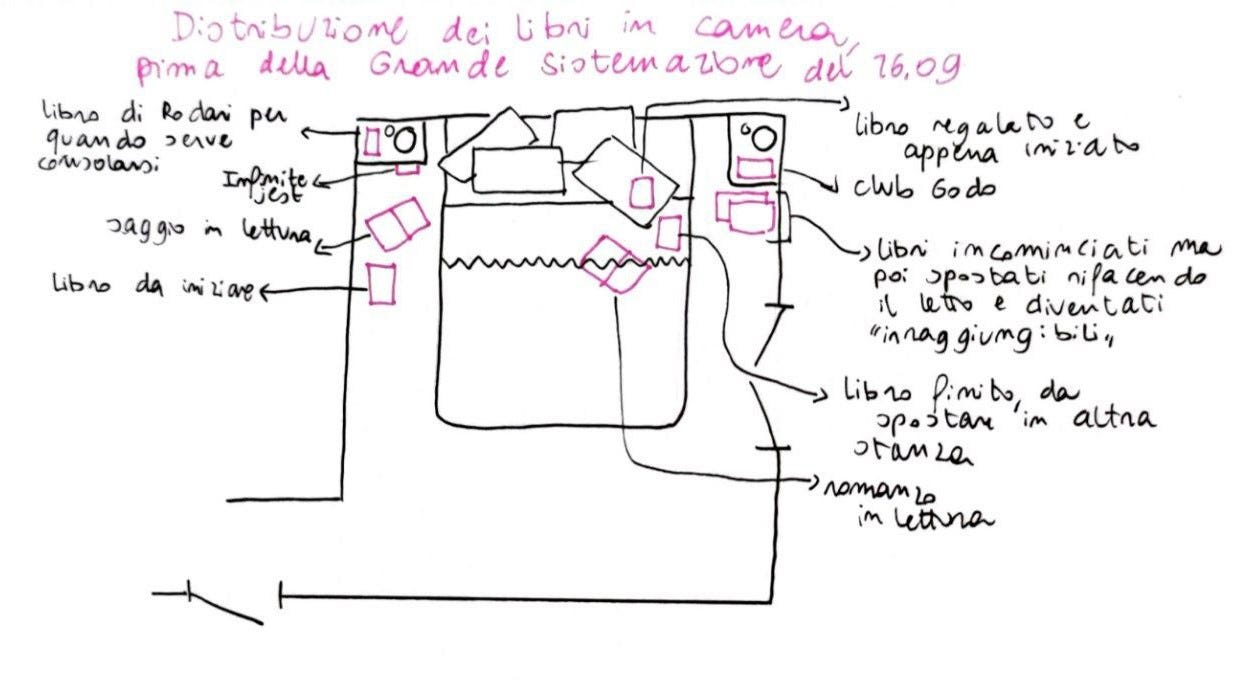 Distribuzione dei libri in camera,
prima della Grande Sistemazione del 16.09
libro di Rodari per
quando serve
consolarsi
Infinite
jest
saggio in lettura
libro da iniziare
libro regalato e
appena iniziato
club Godo
libri incominciati ma
poi spostati rifacendo
il letto e diventati
"irraggiungibili"
libro finito, da
spostare in altra
stanza
romanzo
in lettura